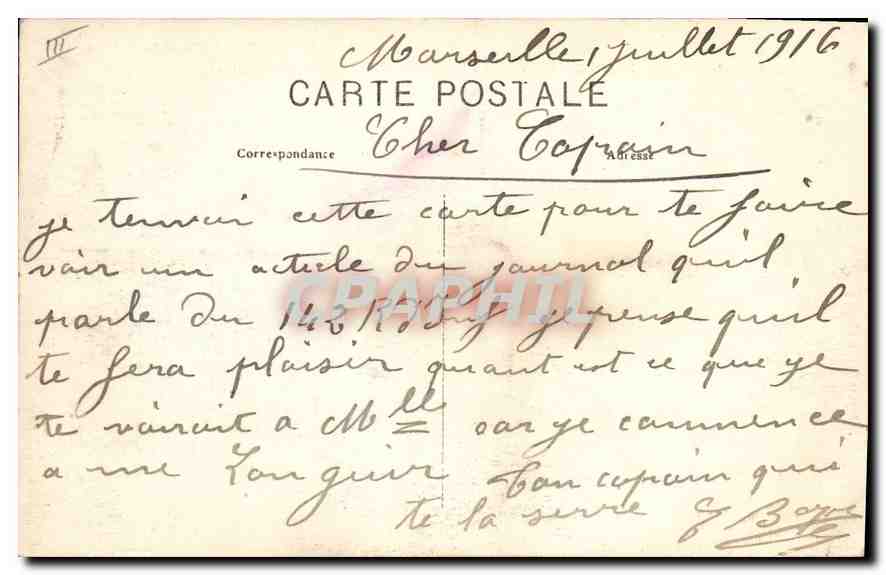 III
Marseille, 1 juillet 1916
CARTE POSTALE
Correspondance
Adresse
Cher Copain
je tenvoir cette carte pour te faire
voir un acticle du journal quil
parle du 142 R je pense quil
te fera plaisir quant est ce que je
te vairait a Mlle car je commence
a me Languir Ton copain qui
te la serre
CPAPHIL